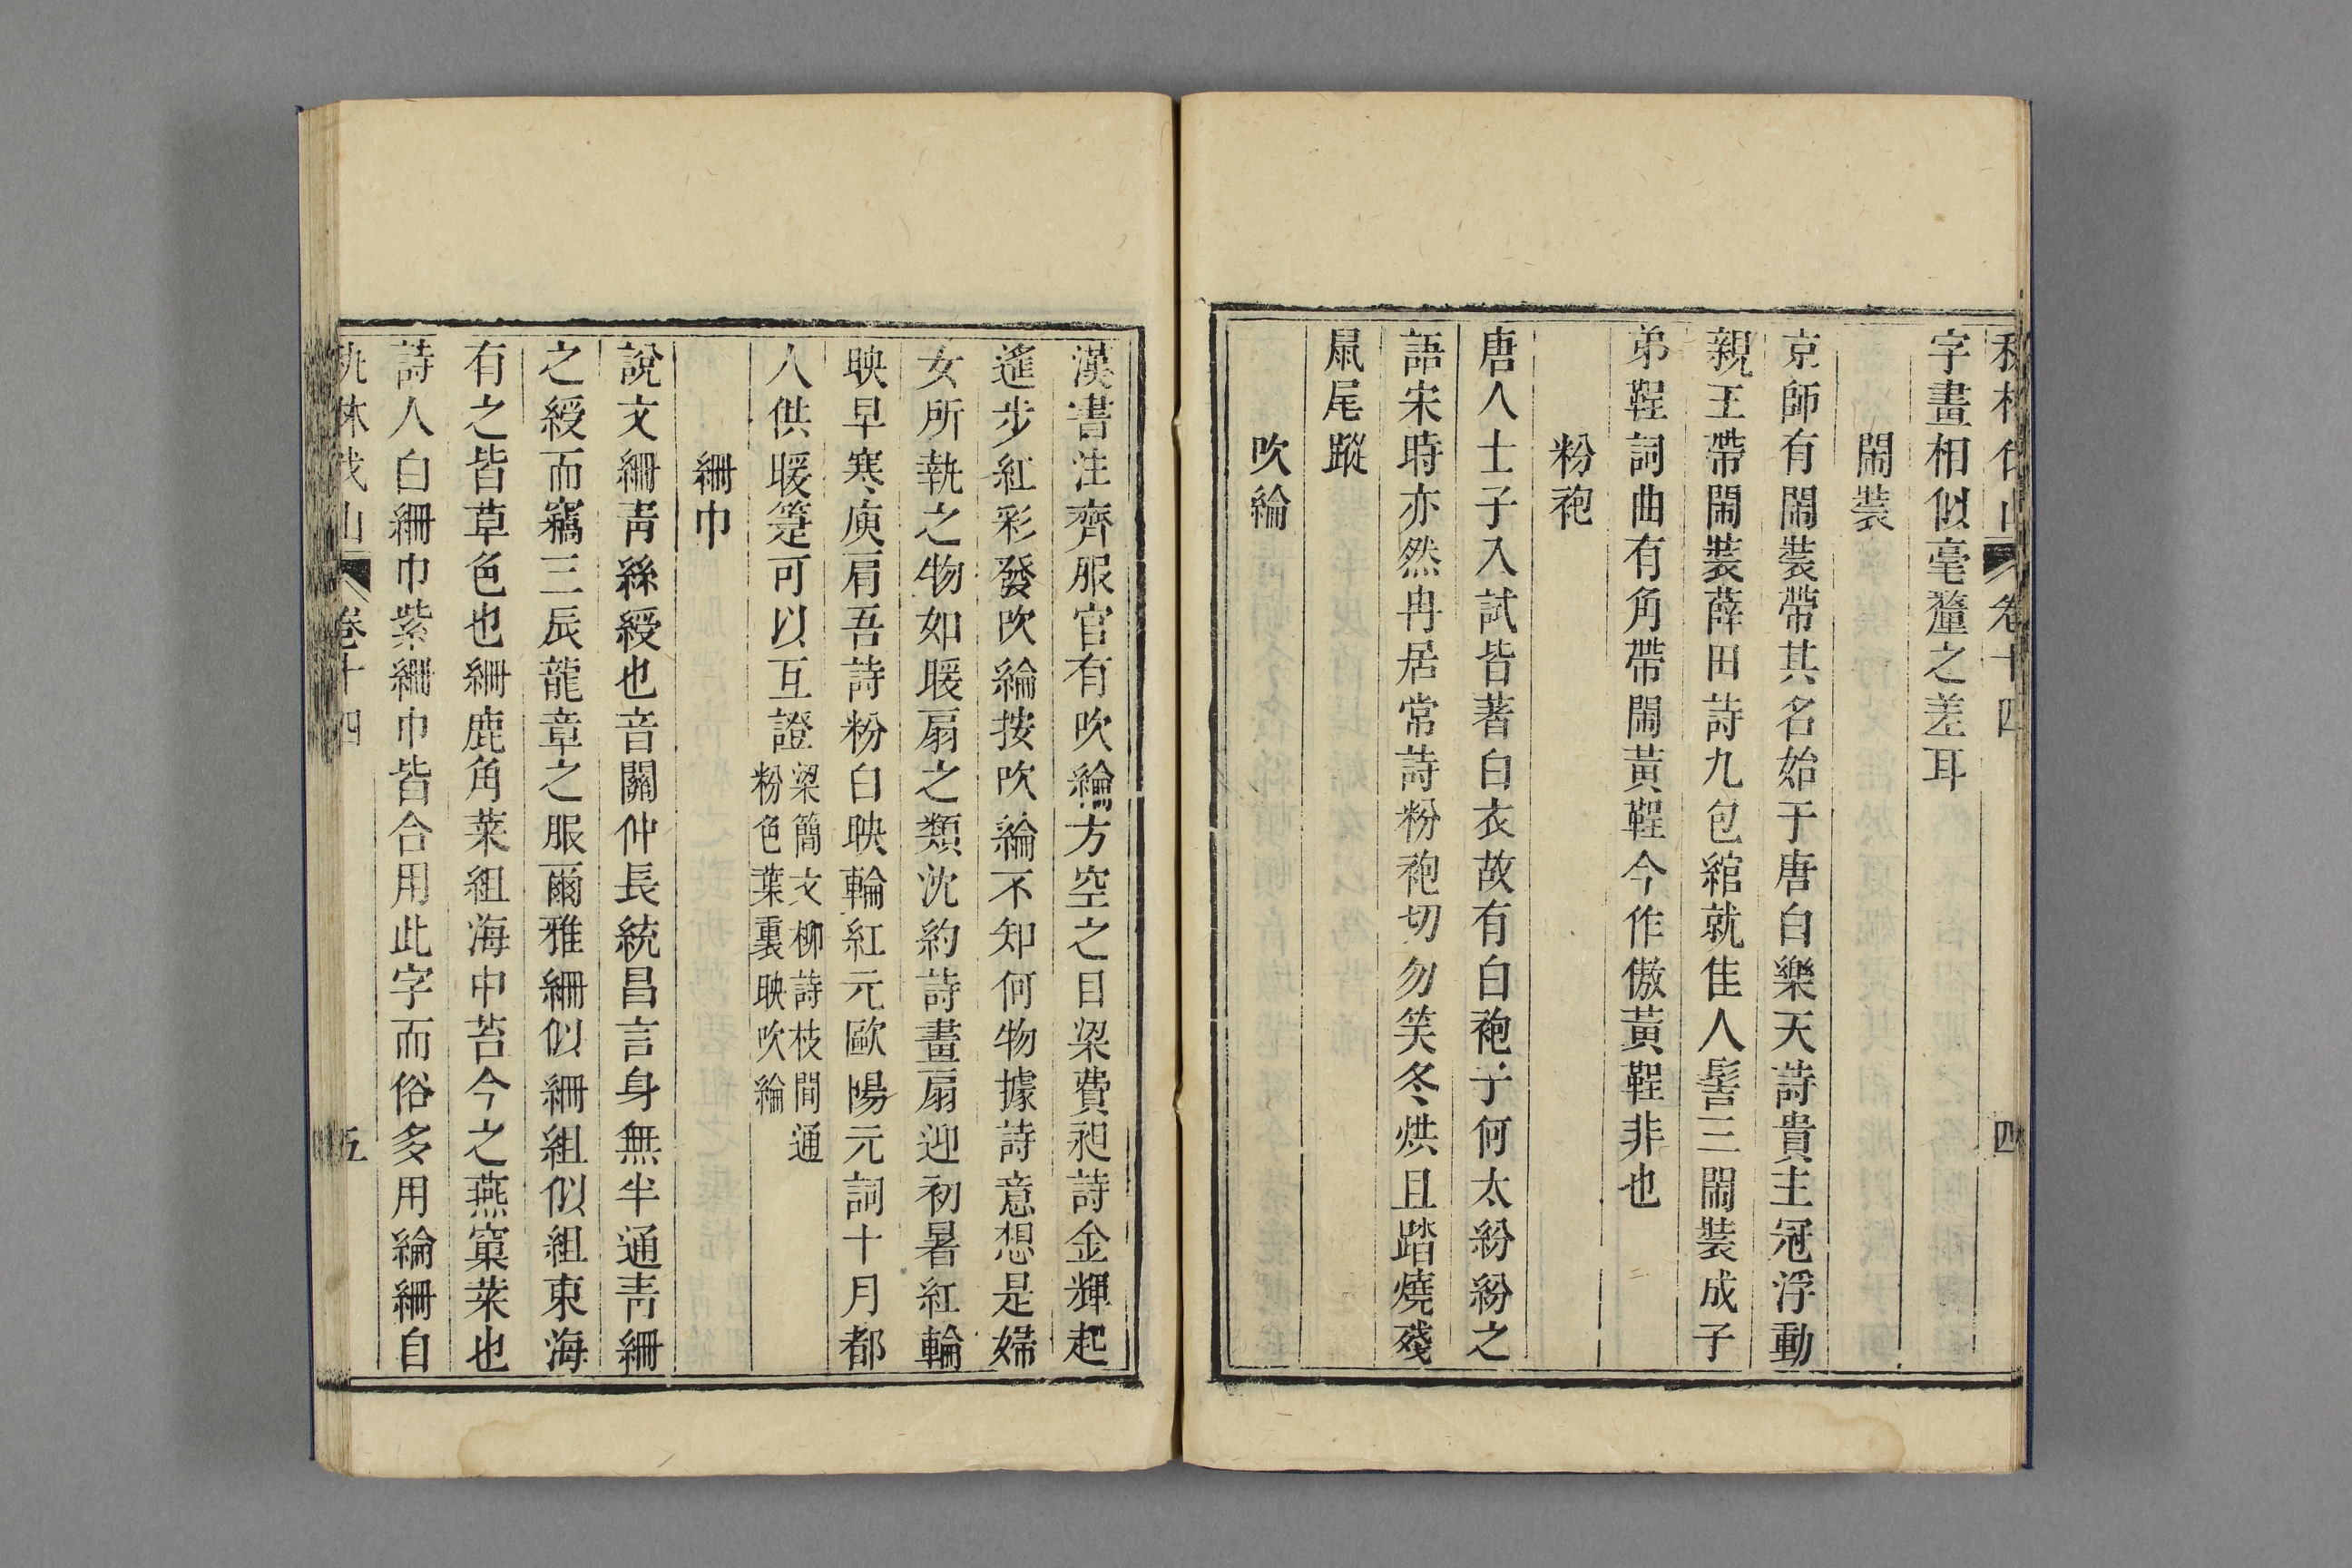 字畫相似毫釐之差耳
閙裝
京師有閙裝帶其名始于唐白樂天詩貴主冠浮動
親王帶閙裝薛田詩九包綰就佳人髻三閙裝成子
弟鞓詞曲有角帶閙黃鞓今作傲黃鞓非也
粉袍
唐人士子入試皆著白衣故有白袍子何太紛紛之
語宋時亦然冉居常詩粉袍切勿笑冬烘且踏燒殘
鼠尾蹤
吹綸
漢書注齊服官有吹綸方空之目梁費昶詩金輝起
遙步紅彩發吹綸按吹綸不知何物據詩意想是婦
女所執之物如暖扇之類沈約詩畫扇迎初暑紅輪
映早寒庾肩吾詩粉白映輪紅元歐陽元詞十月都
人供暖箑可以互證
梁簡文柳詩枝間通
粉色葉裏映吹綸
綸巾
說文綸青絲綬也音關仲長統昌言身無半通青綸
之綬而竊三辰龍章之服爾雅綸似綸組似組東海
有之皆草色也綸鹿角菜組海中苔今之燕窠菜也
詩人白綸巾紫綸巾皆合用此字而俗多用綸綸自
卷十四
五
卷十四
四